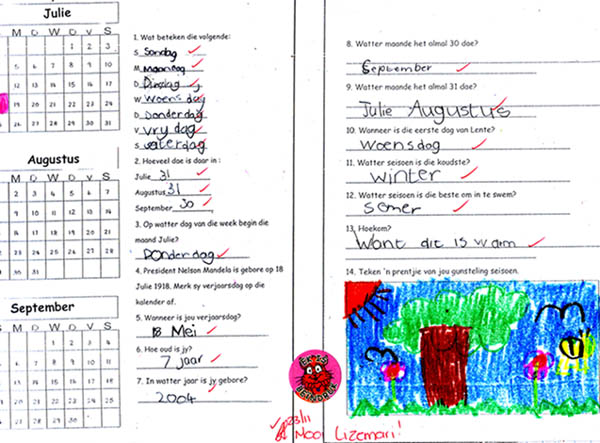 Julie
M D W D V S
1 2 3
5 6 7 8 9 10
12 13 14 15 16 17
19 20 21 22 23 24
26 27 28 29 30 31
Augustus
M D W D V S
2 3 4 5 6 7
9 10 11 12 13 14
16 17 18 19 20 21
23 24 25 26 27 28
30 31
September
M D W D V S
1 2 3 4
6 7 8 9 10 11
13 14 15 16 17 18
20 21 22 23 24 25
27 28 29 30
1. Wat beteken die volgende:
S Sondag
M Maandag
D Dinsdag
W Woensdag
D Donderdag
V Vrydag
S Saterdag
2. Hoeveel dae is daar in :
Julie 31
Augustus 31
September 30
3. Op watter dag van die week begin die
maand Julie?
Donderdag
4. President Nelson Mandela is gebore op 18
Julie 1918. Merk sy verjaarsdag op die
kalender af.
5. Wanneer is jou verjaarsdag?
18 Mei
6. Hoe oud is jy?
7 jaar
7. In watter jaar is jy gebore?
2004
8. Watter maande het almal 30 dae?
September
9. Watter maande het almal 31 dae?
Julie Augustus
10. Wanneer is die eerste dag van Lente?
Woensdag
11. Watter seisoen is die koudste?
winter
12. Watter seisoen is die beste om in te swem?
somer
13. Hoekom?
Want dit is warm
14. Teken 'n prentjie van jou gunsteling seisoen.
EK IS
BEÏNDRUK
23/11
Mooi Lizemari!